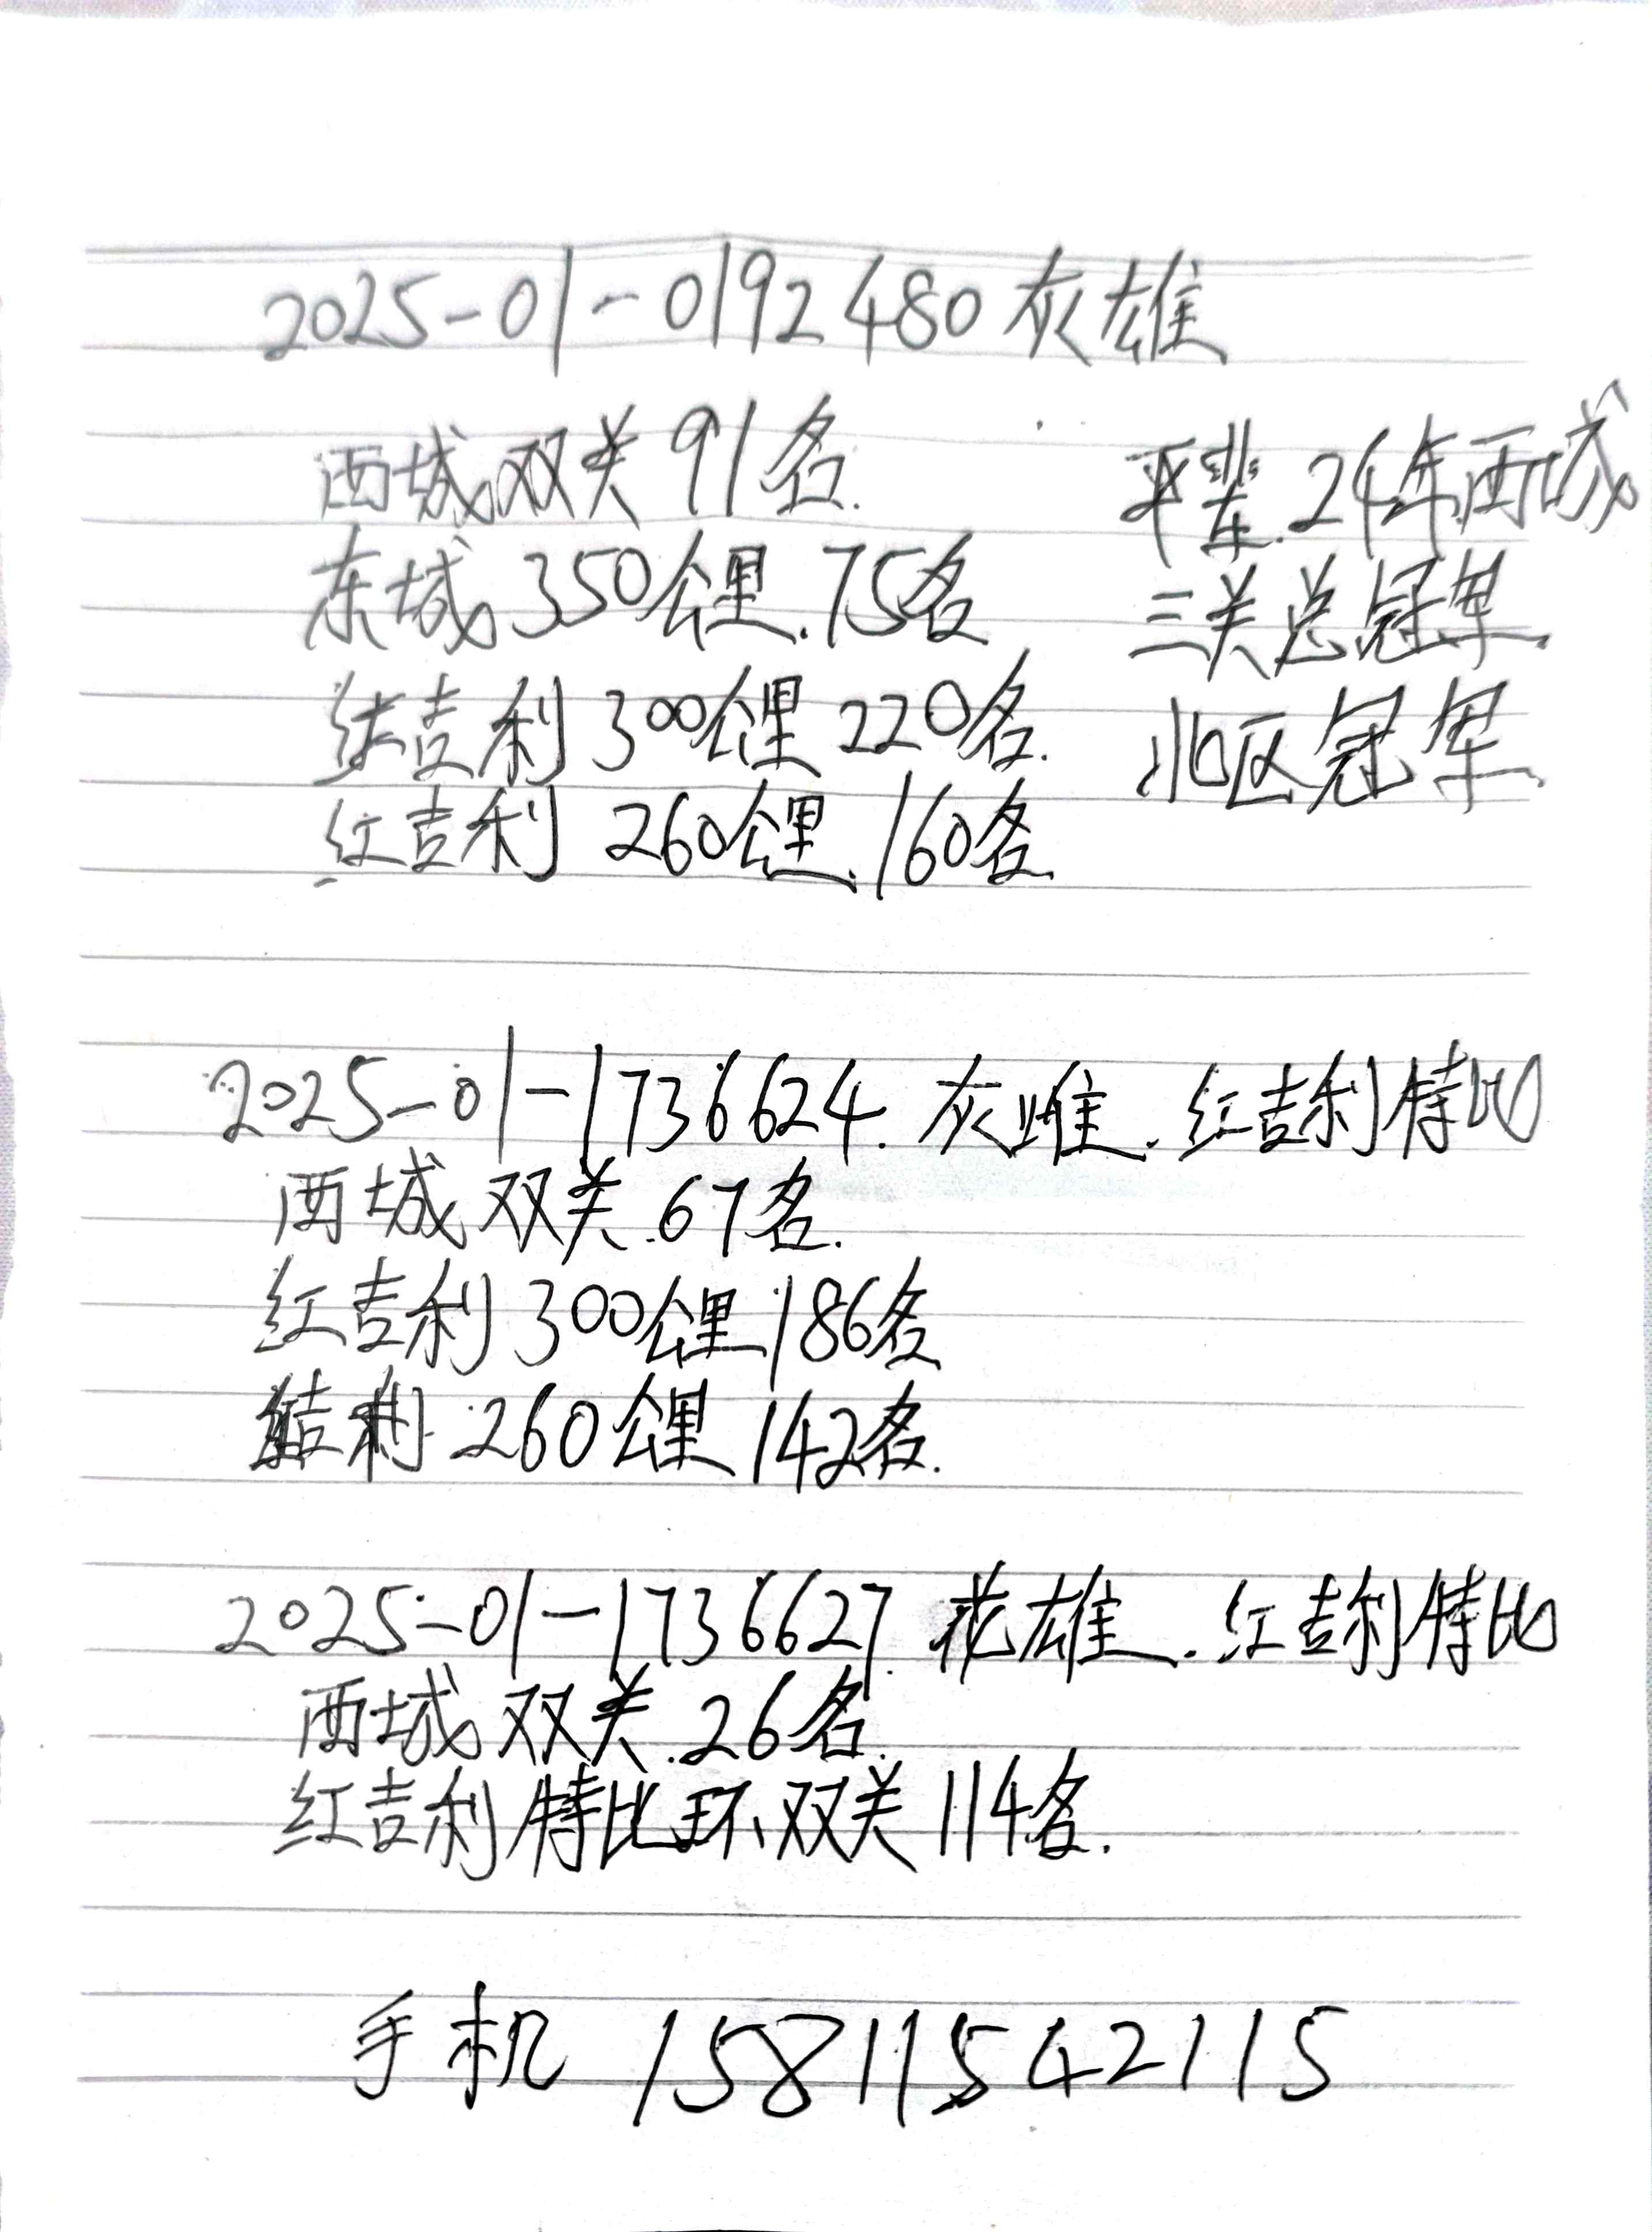 2025-01-0192480灰雄
西城双关91名.
东城350公里.75名
红吉利300公里220名.
红吉利260公里.160名
平辈.24年西城
三关总冠军.
北区冠军.
2025-01-1736624.灰雌.红吉利特比
西城双关.67名.
红吉利300公里186名
吉利260公里142名.
2025-01-1736627.花雄.红吉利特比
西城双关.26名.
红吉利特比环双关114名.
手机 15811542115